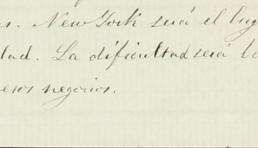 New York será el lug
dad. La dificultad será
esos negocios.